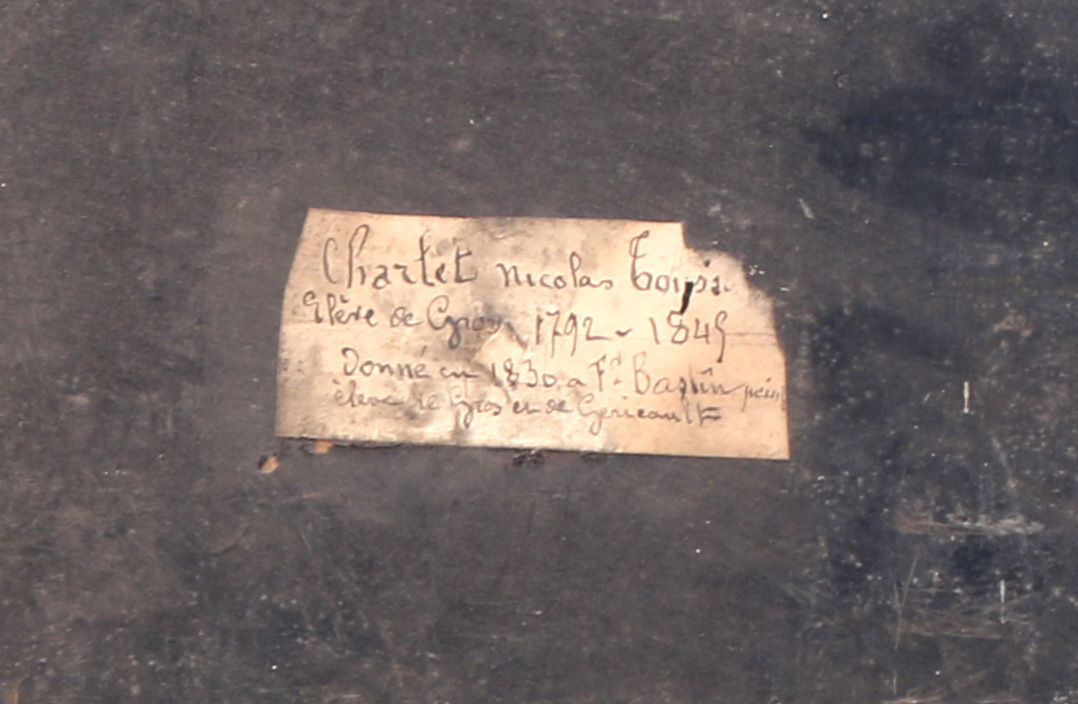 Chartet nicolas Tous
Elève de Gros 1792 - 1845
Donné en 1830 a Fd. Bastin pein
élève de Gros et de Gericault